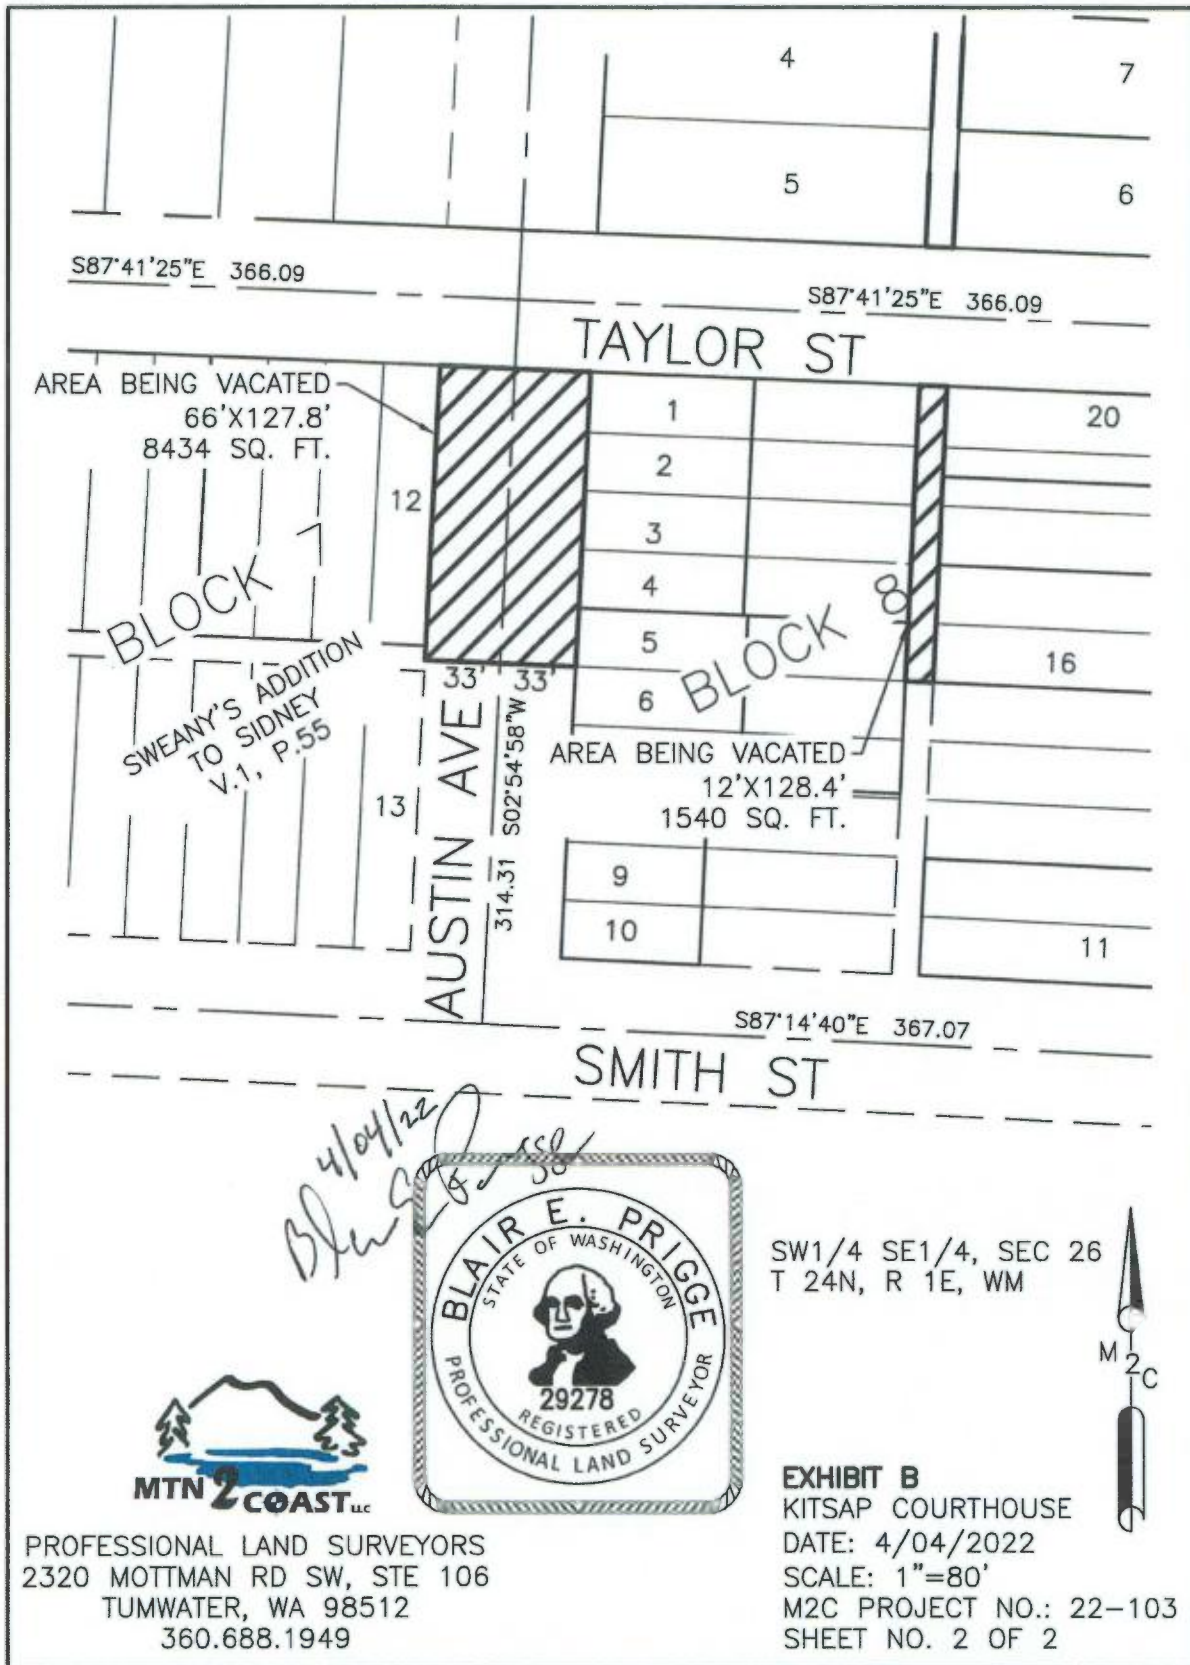 4
7
5
6
S87°41'25"E 366.09
S87°41'25"E 366.09
TAYLOR ST
AREA BEING VACATED
66'X127.8'
8434 SQ. FT.
12
1
2
3
4
5
6
20
16
BLOCK 7
BLOCK 8
SWEANY'S ADDITION
TO SIDNEY
V.1, P.55
33' 33'
AREA BEING VACATED
12'X128.4'
1540 SQ. FT.
13
AUSTIN AVE
314.31 S02°54'58"W
9
10
11
S87°14'40"E 367.07
SMITH ST
4/04/22
BLAIR E. PRIGGE
STATE OF WASHINGTON
29278
REGISTERED
PROFESSIONAL LAND SURVEYOR
SW1/4 SE1/4, SEC 26
T 24N, R 1E, WM
M2C
MTN 2 COAST LLC
PROFESSIONAL LAND SURVEYORS
2320 MOTTMAN RD SW, STE 106
TUMWATER, WA 98512
360.688.1949
EXHIBIT B
KITSAP COURTHOUSE
DATE: 4/04/2022
SCALE: 1"=80'
M2C PROJECT NO.: 22-103
SHEET NO. 2 OF 2